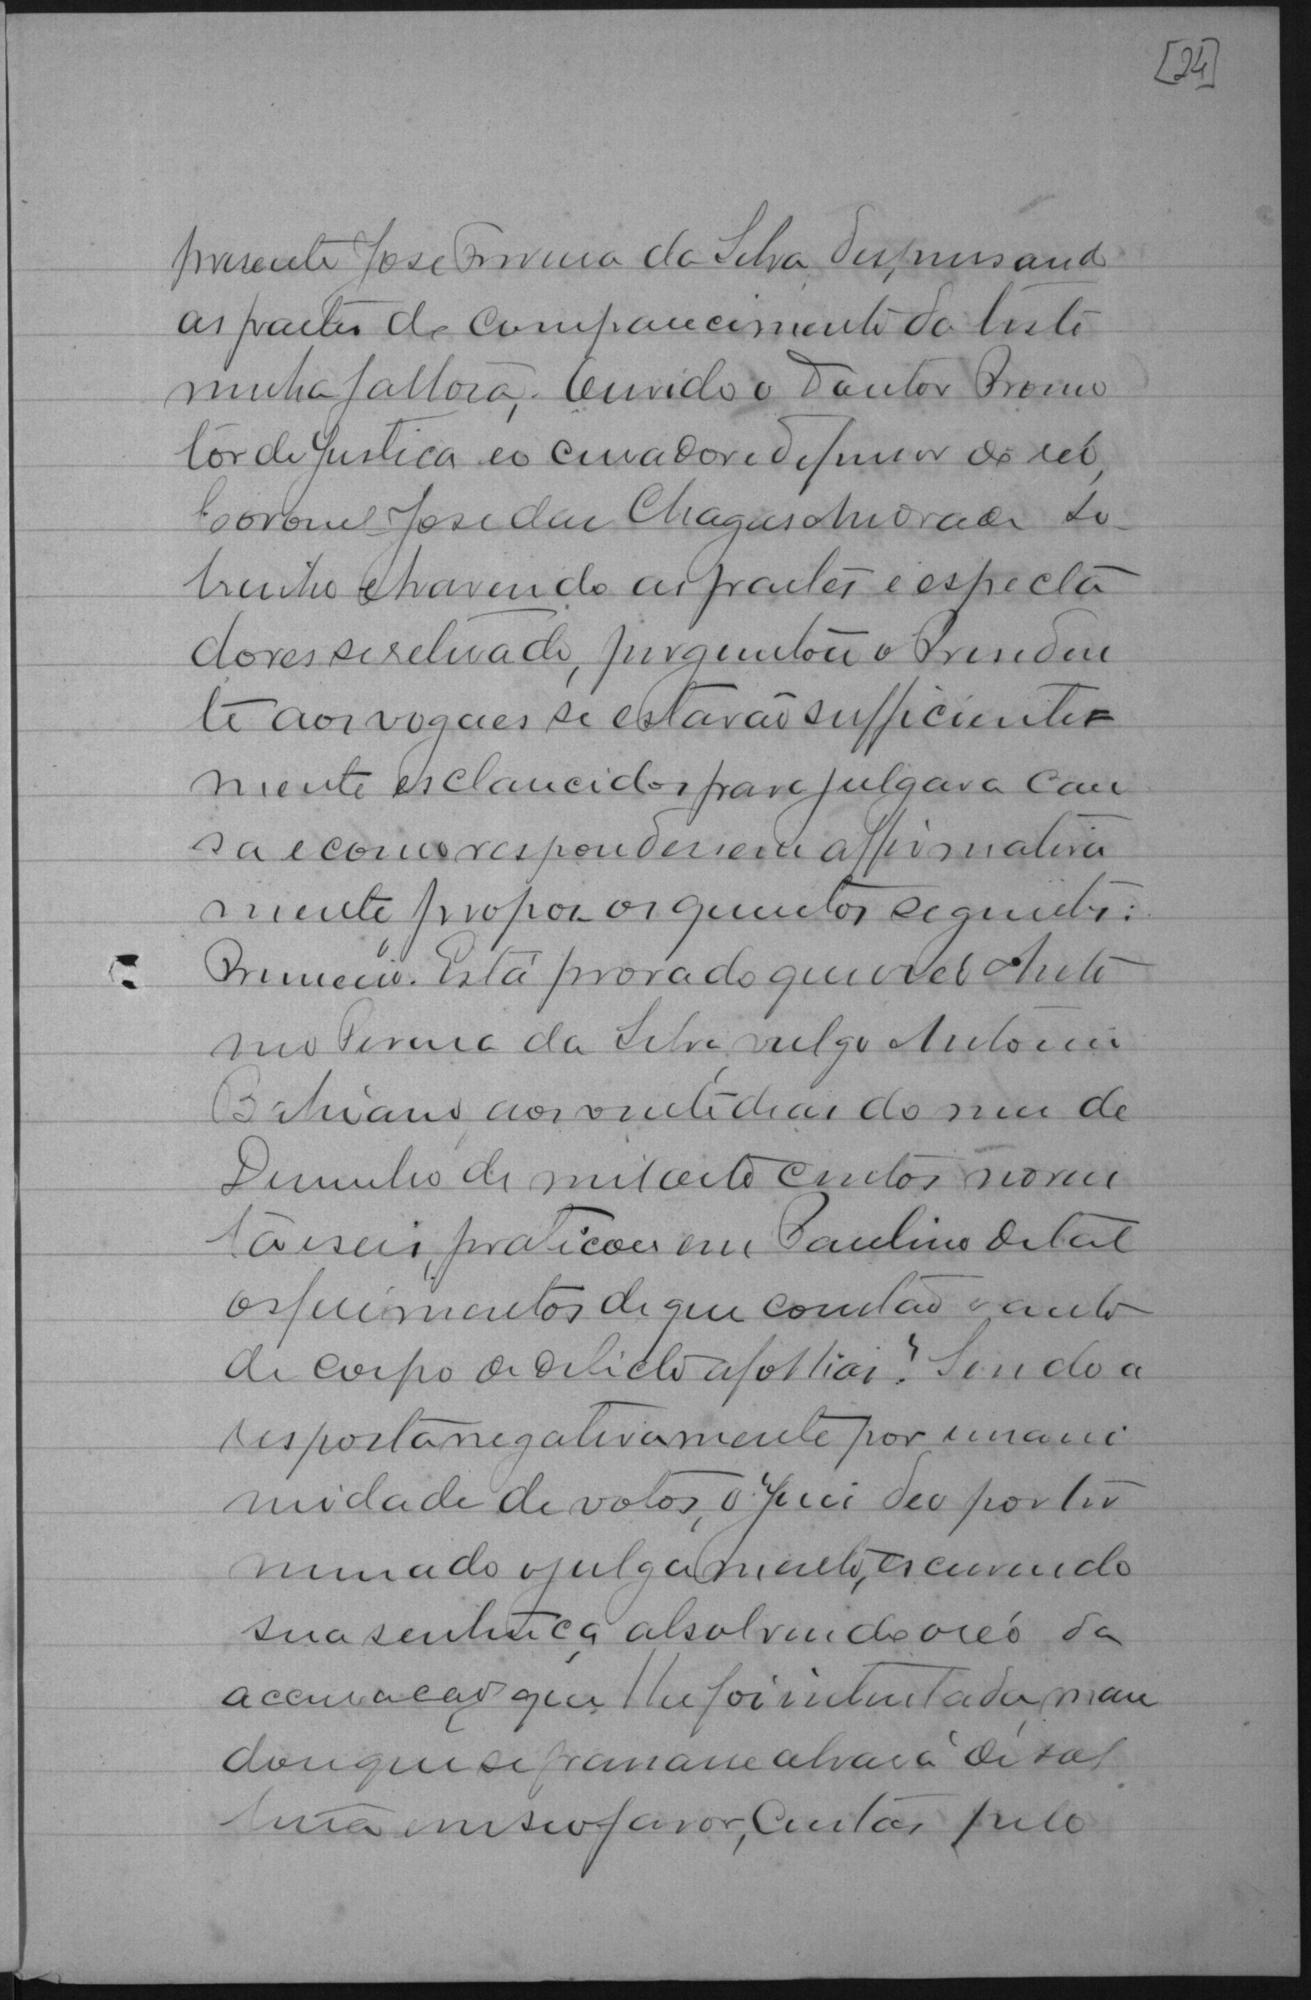 [24]
presente José Ferreira da Silva, dispensando
as partes do comparecimento da teste
munha faltosa. Ouvido o Doutor Promo
tor de Justiça e o curador e defensor do reó,
Coronel José das Chagas Andrade So-
brinho e havendo as partes e especta
dores se retirado, perguntou o Presiden
te aos vogaes se estavão sufficiente=
mente esclarecidos para julgar a cau
sa e como respondessem affirmativa
mente, propoz os quesitos seguintes:
Primeiro. Está provado que o reó Anto
nio Pereira da Silva, vulgo Antonio
Bahiano, aos vinte dias do mez de
Dezembro de mil oito centos noven
ta e seis, praticou em Paulino de tal
os ferimentos de que constão o auto
de corpo de delicto a folhas? Sendo a
resposta negativamente por unani
midade de votos, o Juiz deo por ter
minado o julgamento, escrevendo
sua sentença absolvendo o reó da
accusação que lhe foi intentada, man
dou que se passasse alvará de sol
tura em seo favor, Custas pelo